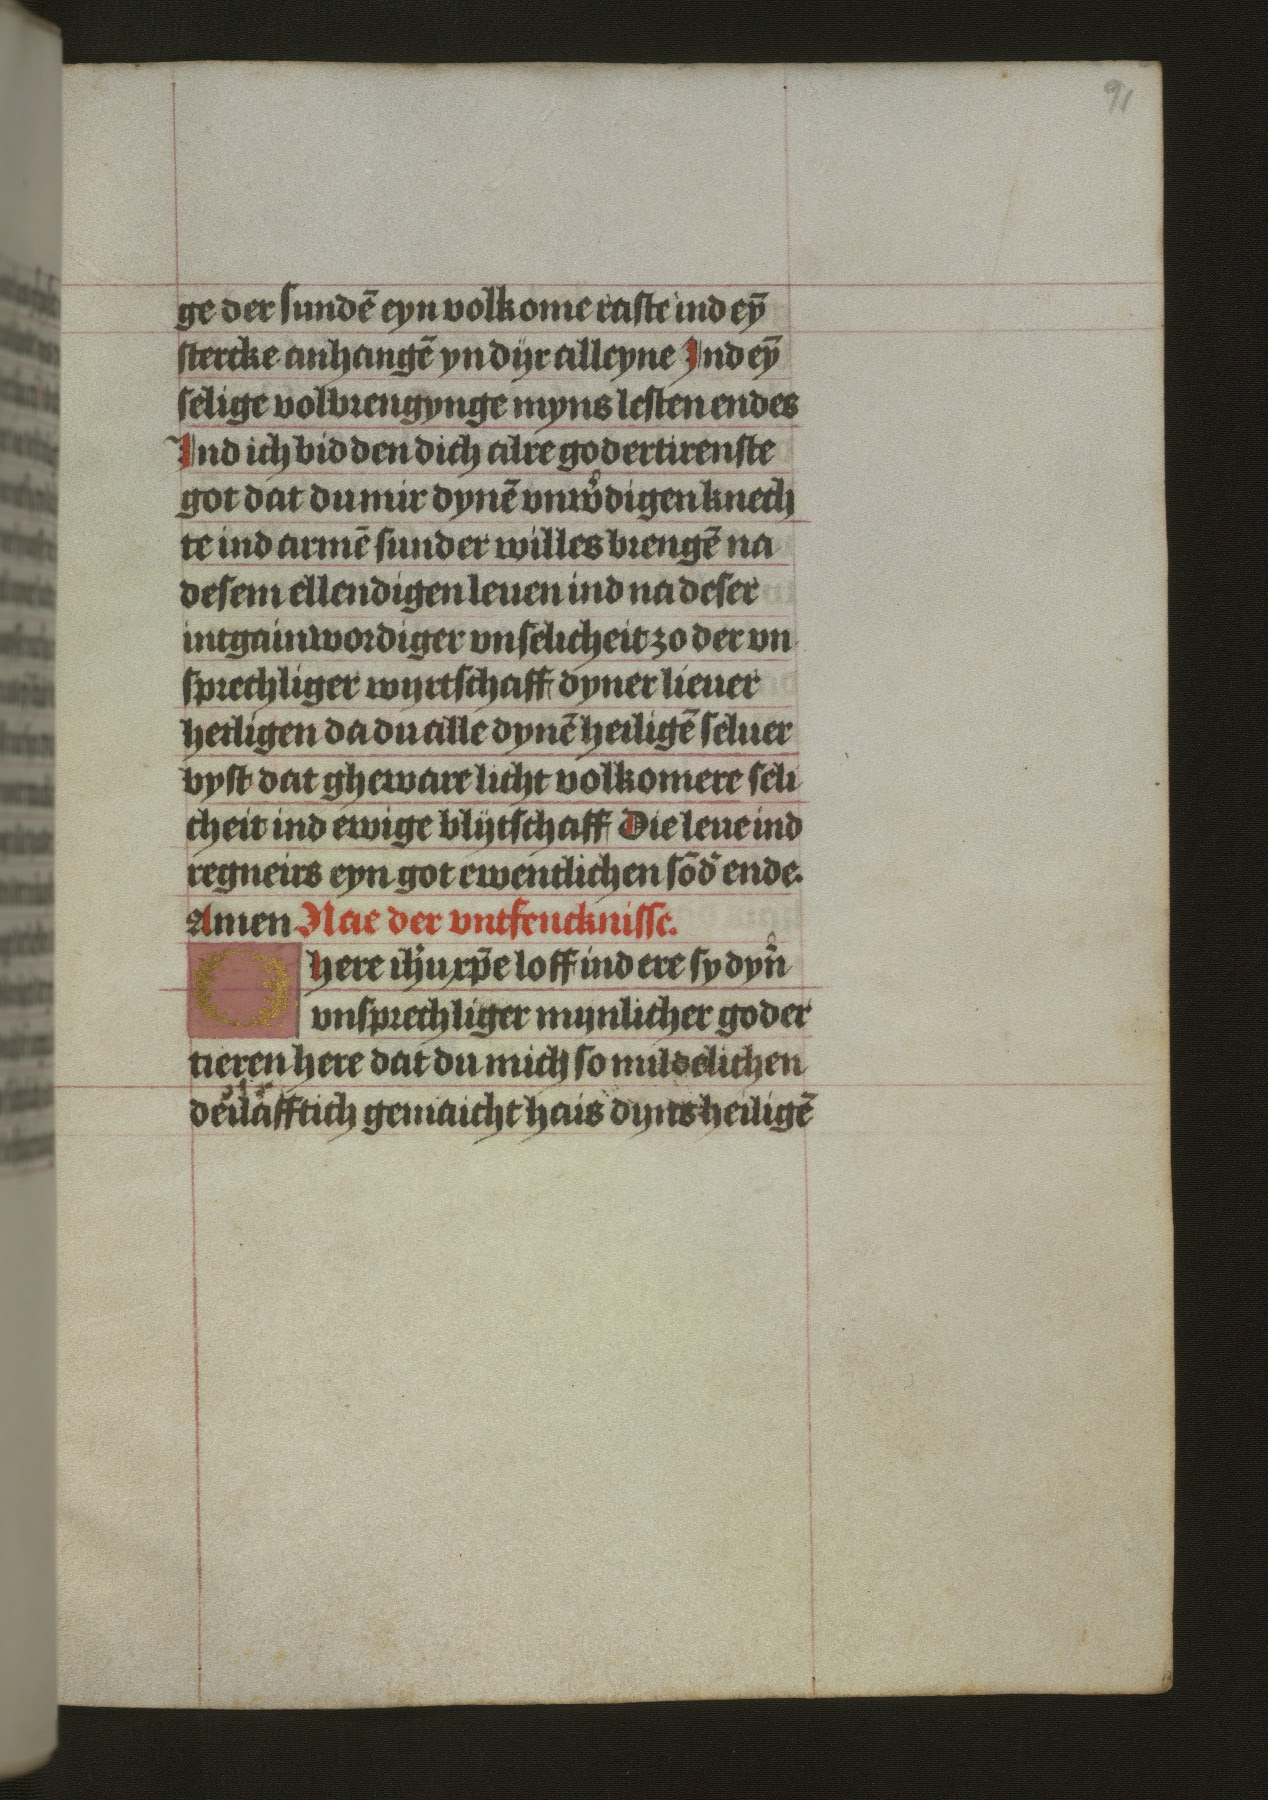 91
ge der sundē eyn volkome raste ind eȳ
stercke anhangē yn dijr alleyne Ind eȳ
selige volbrengynge myns lesten endes
Ind ich bidden dich alre godertirenste
got dat du mir dynē vnwͦdigen knech
te ind armē sunder willes brengē na
desem ellendigen leuen ind na deser
intgainwordiger vnselicheit zo der vn
sprechliger wyrtschaff dyner lieuer
heiligen da du alle dynē heiligē seluer
byst dat gheware licht volkomere seli
cheit ind ewige blijtschaff Die leue ind
regneirs eyn got ewentlichen sōd᷑ ende.
Amen Nae der vntfencknisse.
O here ihū xp̄e loff ind ere sy dyn̄
vnsprechliger mynlicher goder
tieren here dat du mich so mildelichen
deilafftich gemaicht hais dyns heiligē